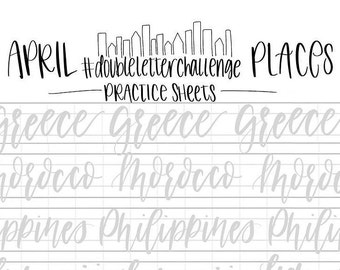 APRIL #doubleletterchallenge PLACES
PRACTICE SHEETS
Greece Greece Greece
Morocco Morocco Morocco
ippines Philippines Phili